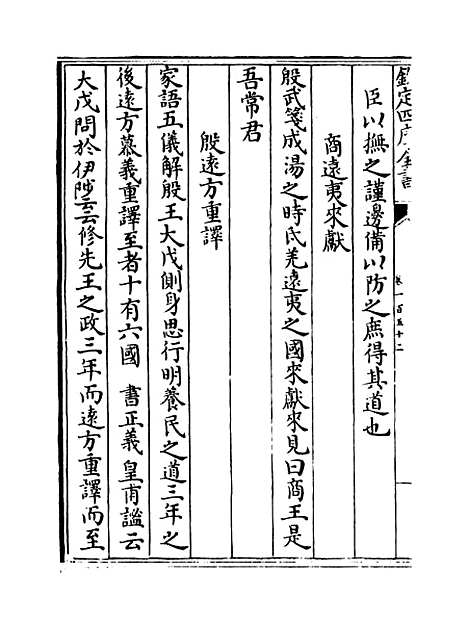 欽定四庫全書
卷一百五十二
臣以撫之謹邊備以防之庶得其道也
商遠夷來獻
殷武箋成湯之時氐羌遠夷之國來獻來見曰商王是
吾常君
殷遠方重譯
家語五儀解殷王大戊側身思行明養民之道三年之
後遠方慕義重譯至者十有六國 書正義皇甫謐云
大戊問於伊陟云云修先王之政三年而遠方重譯而至